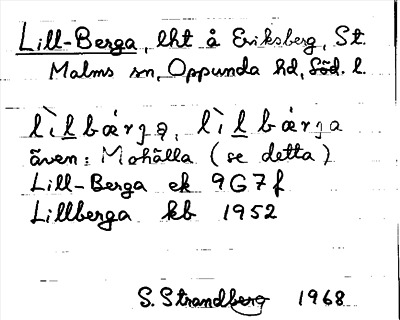 Lill-Berga, lht å Eriksberg, St.
Malms sn, Oppunda hd, Söd. l.
lìl bærja, lìl bærja
även: Mohälla (se detta)
Lill-Berga ek 9G7f
Lillberga kb 1952
S. Strandberg 1968